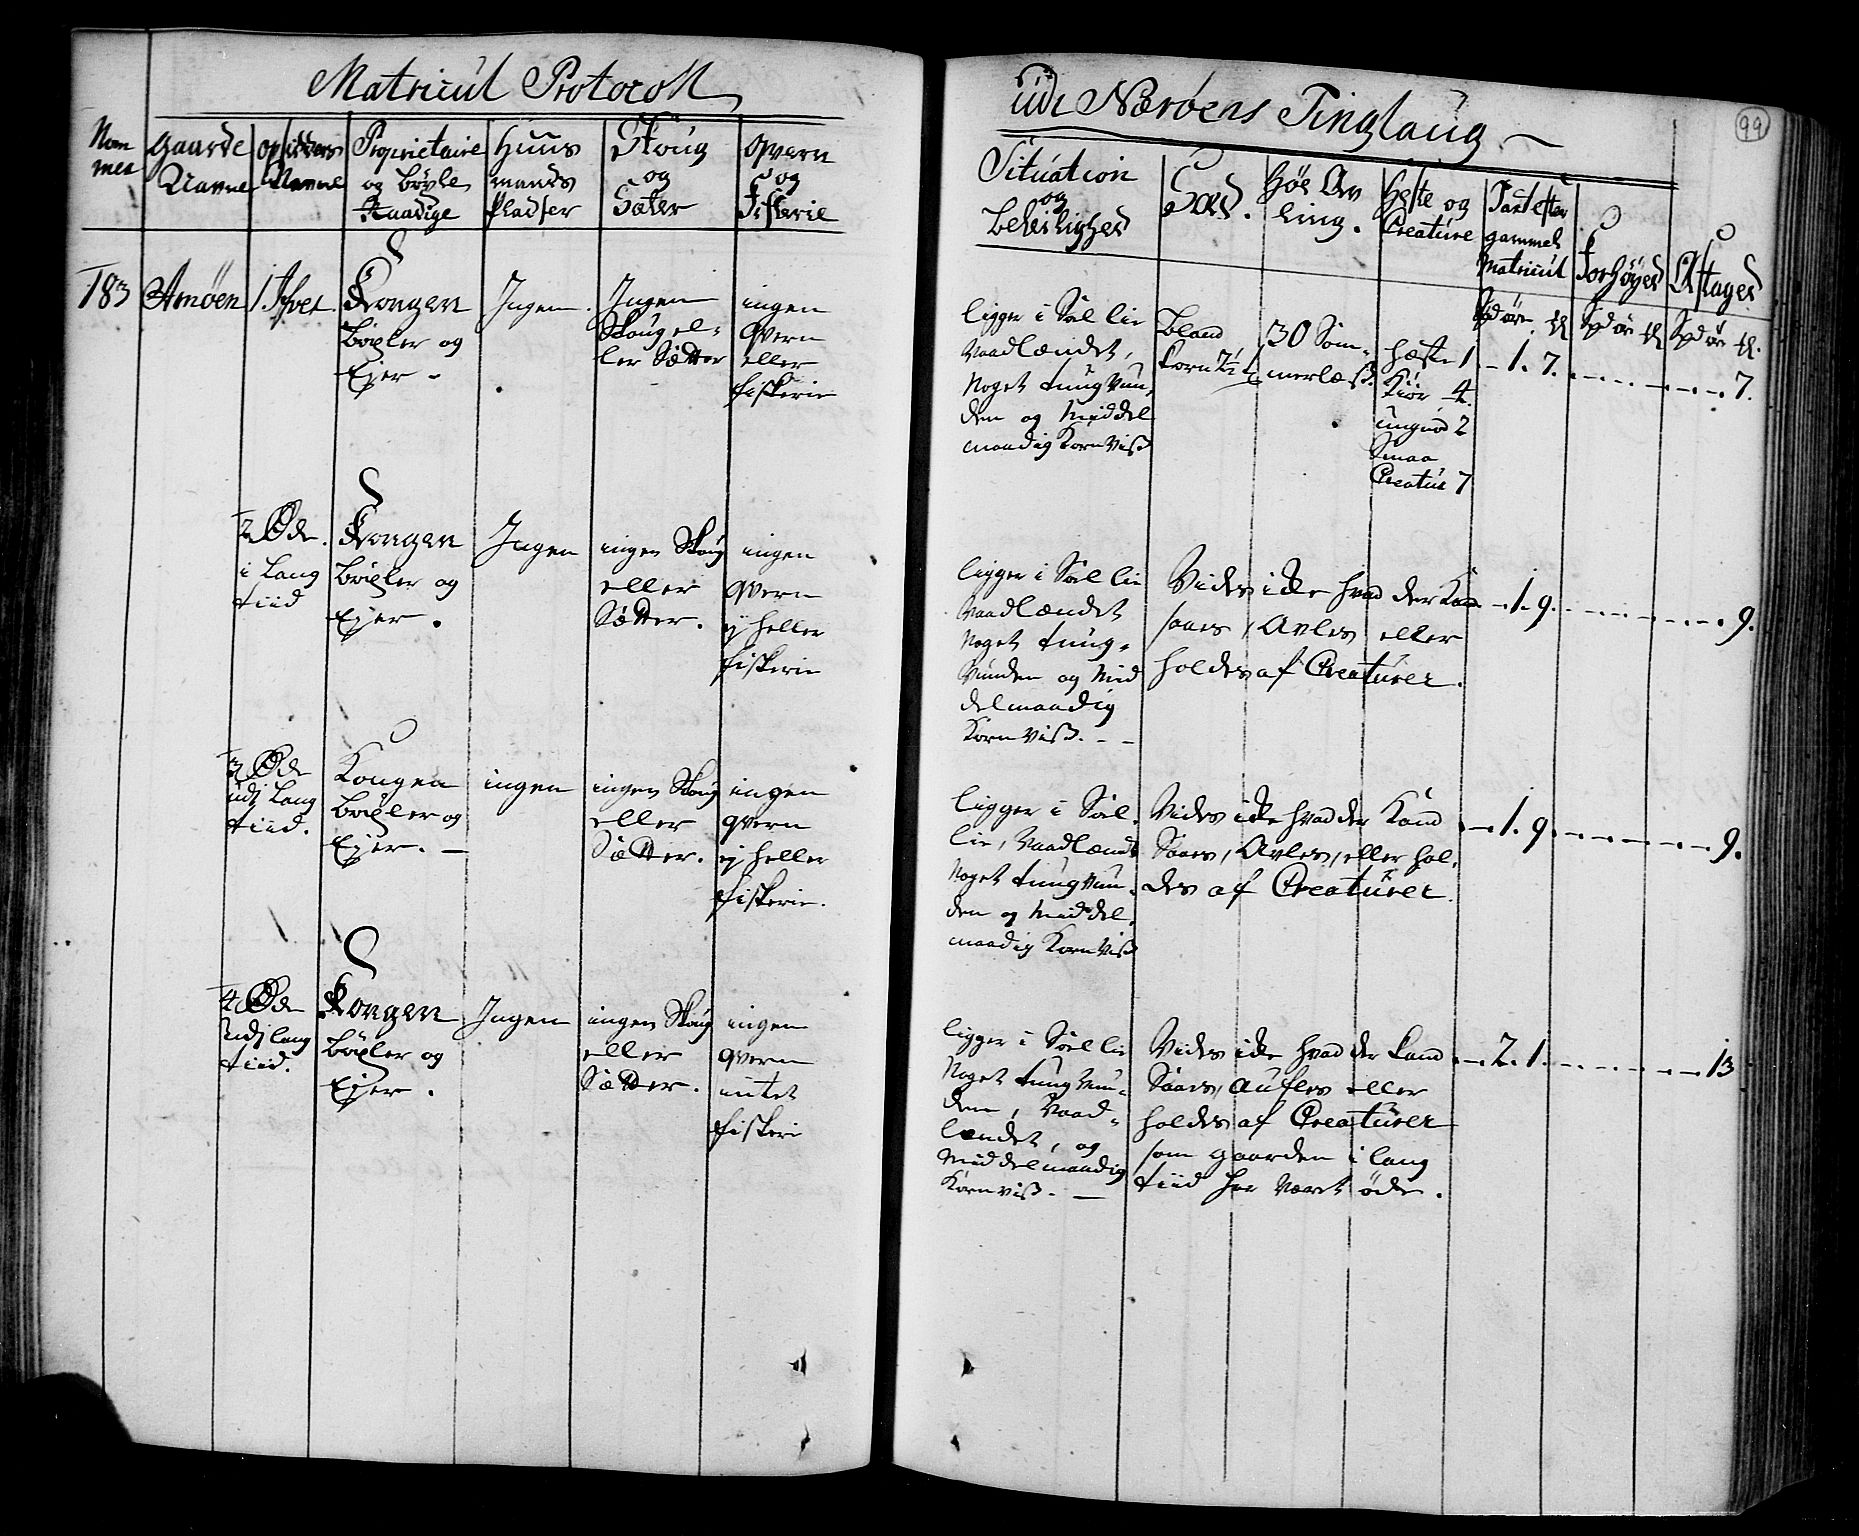 Matricul Protocoll
udi Nærøens Tinglaug
99
Nom
mer
Gaarde
Navne
opsidders
Navne
Proprietaire
og Bøxle
Raadige
Huus
mands
Pladser
Skoug
og
Sæter
Qvern
og
Fiskerie
Situation
og
beleilighed
Sæd.
Høe Av
ling.
Heste og
Creature
Taxt efter
gammel
Matricul
Forhøyed
Aftaged
Spd ør
Spd ør
Spd ør
183
Amøen
1
Kongen
bøxler og
Ejer -
Ingen
Ingen
Skoug el-
ler Sætter
ingen
qvern
eller
fiskerie
ligger i Soel lie
Vaadlændet,
Noget tung Vun,
den og Middel
maadig Korn Viß
bland
korn 7½
30 Som-
merlæß.
Hæste 1
Kiør 4
ungnød 2
Smaa
Creatur 7
- 1. 7.
7.
2 Øde.
i Lang
tiid
Kongen
bøxler og
Ejer.
Ingen
ingen Skoug
eller
Sætter.
ingen
qvern
ej heller
fiskerie
ligger i Soel lie
Vaadlændet
Noget tung-
Vunden og Mid
delmaadig
Korn Viß. - -
Vides icke hvad der Kand
saaes, Avles eller
holdes af Creaturer.
- 1. 9.
9.
3 Øde
udj Lang
tiid.
Kongen
bøxler og
Ejer. -
ingen
ingen Skoug
eller
Sætter.
ingen
qvern
ej heller
fiskerie.
ligger i Soel.
lie, Vaadlændt
Noget tung Vun.
den og Middel,
maadig Korn Viß
Vides icke hvad der Kand
Saaes, Avles, eller hol.
des af Creaturer.
- 1. 9.
9.
4 Øde
udj lang
tiid.
Kongen
bøxler og
Ejer.
Ingen
ingen Skoug
eller
Sætter.
ingen
qvern
intet
fiskeri
ligger i Soel lie
Noget tung Vun-
den, Vaad-
lændet, og
Middelmaadig
Kornviß. -
Vides icke hvad der kand
Saaes, aufles eller
holdes af Creaturer
som gaarden i lang
tiid har Været øde.
- 2. 1.
13